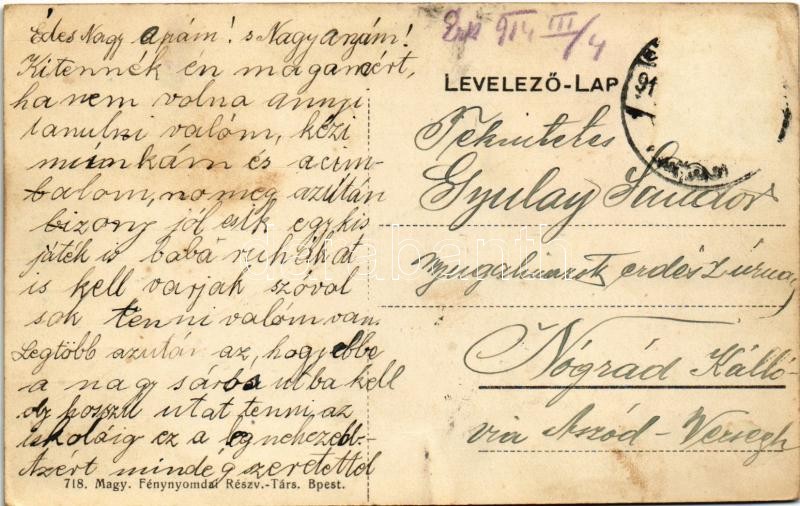 Édes Nagy apám! s Nagyanyám!
Kitennék én magamért,
ha nem volna annyi
tanulni valóm, kézi
munkám és a cim-
balom, no meg azután
bizony jól esik egy kis
játék is babá ruhákat
is kell varjak szóval
sok tenni valóm van.
Legtöbb azután az, hogy ebbe
a nagy sárba utba kell
oly hosszu utat tenni az
iskoláig ez a legnehezebb.-
Azért mindég szeretettel
718. Magy. Fénynyomdai Részv.-Társ. Bpest.
914 III/4
LEVELEZŐ-LAP
91
Tekintetes
Gyulay Sándor
nyugalmazott erdész úrnak
Nógrád Kálló
via Aszód-Verseg
darabanth